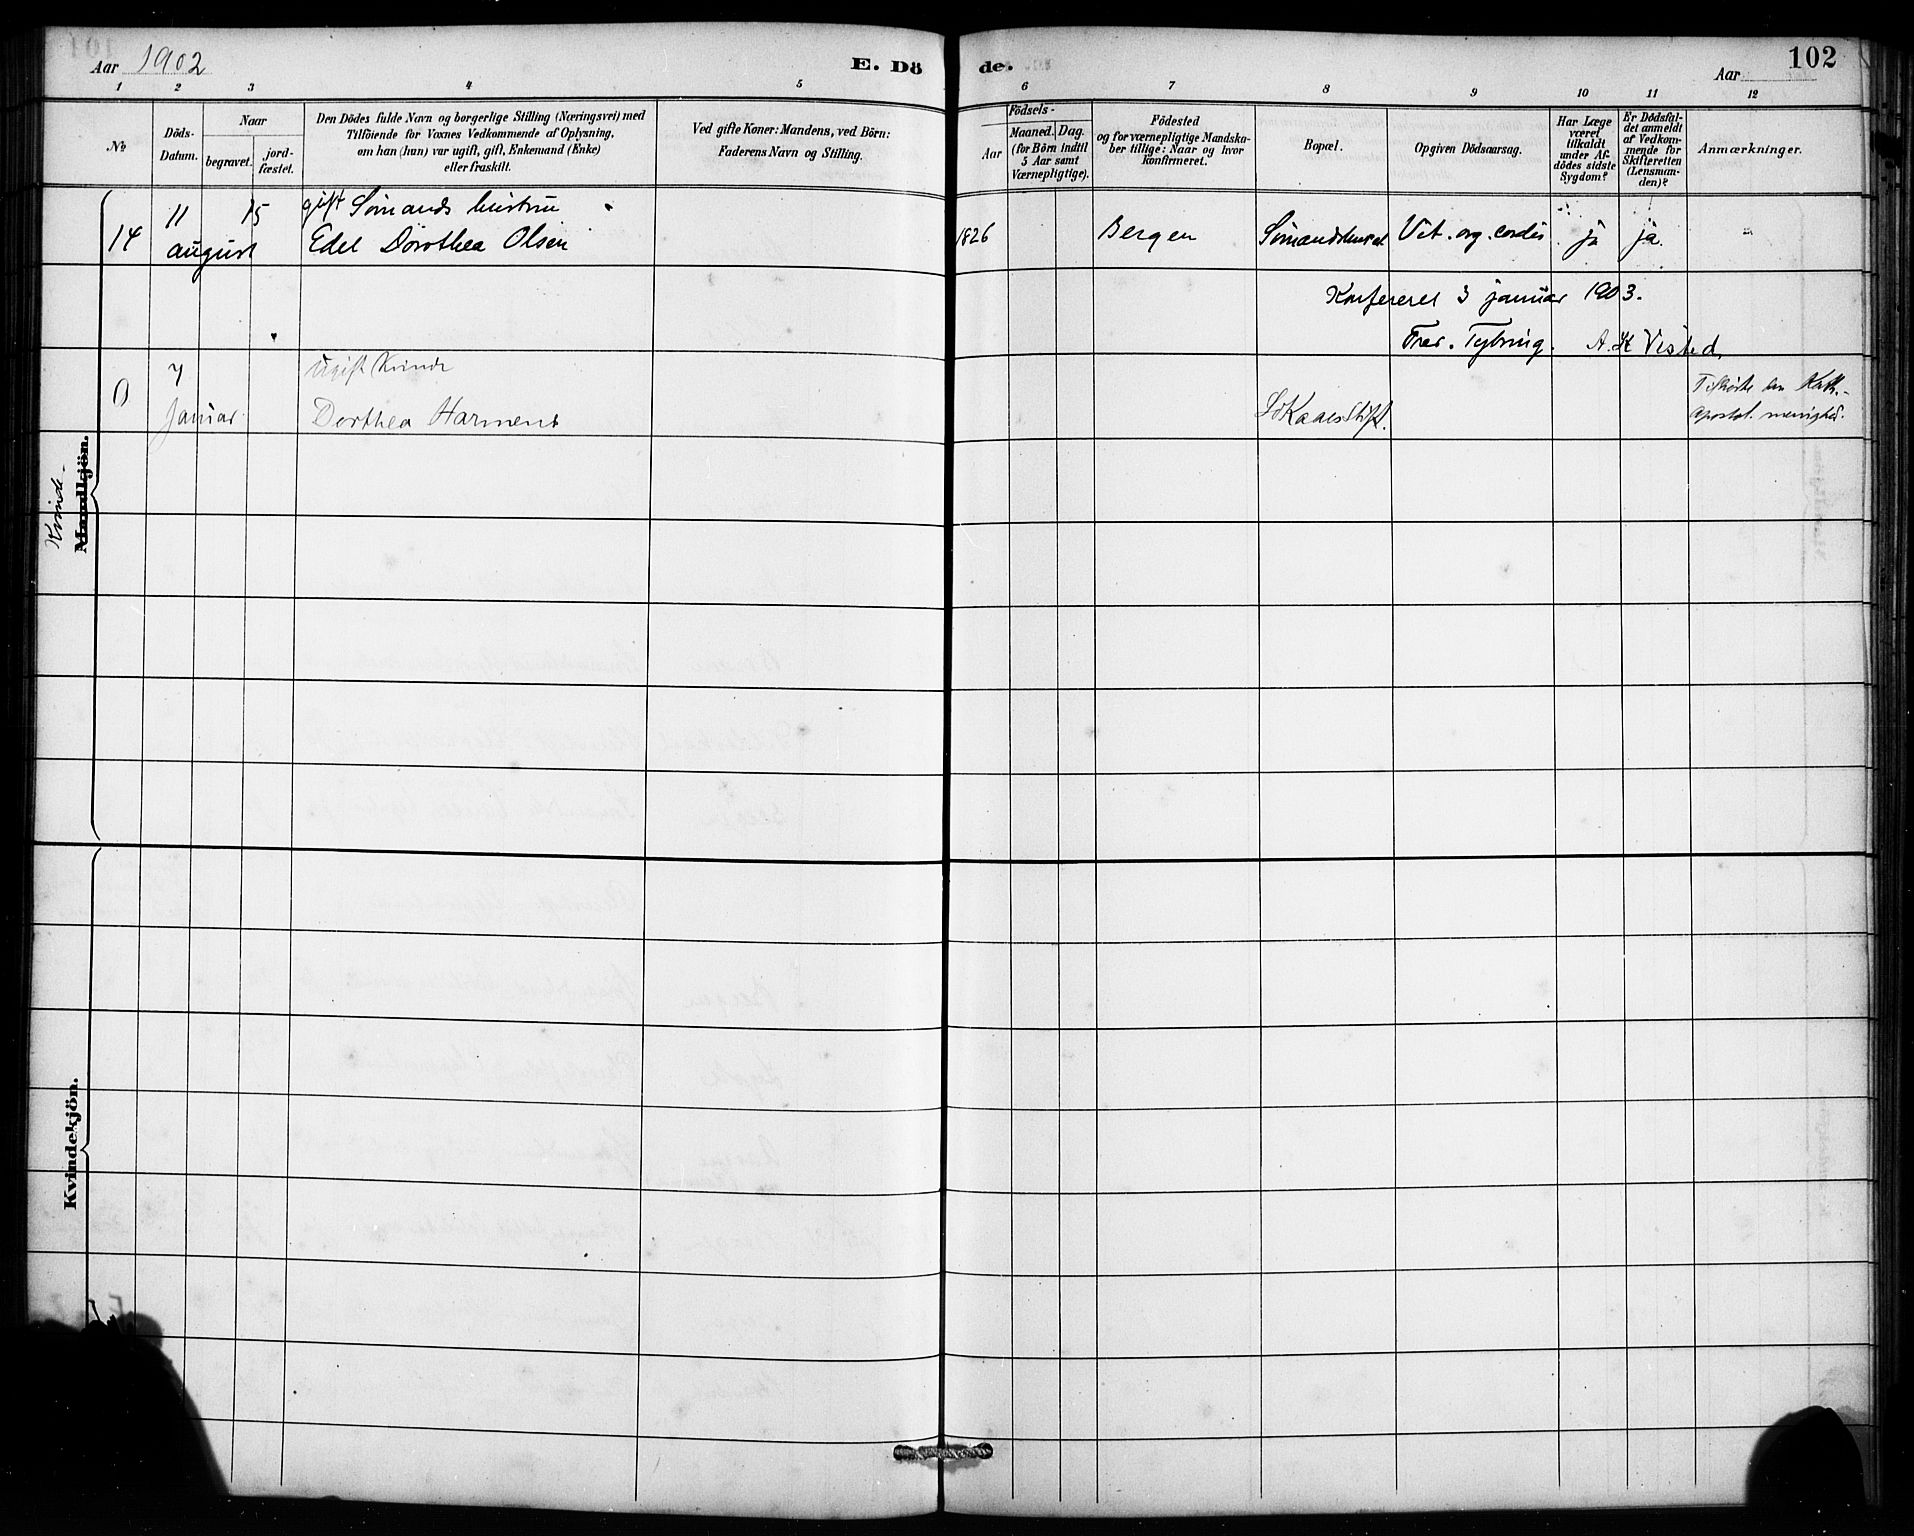 Aar 1902
E. Dö
de.
Aar
102
1 2 3 4 5 6 7 8 9 10 11 12
№
Döds-
Datum.
Naar
begravet.
jord-
fæstet.
Den Dödes fulde Navn og borgerlige Stilling (Næringsvei) med
Tilföiende for Voxnes Vedkommende af Oplysning,
om han (hun) var ugift, gift, Enkemand (Enke)
eller fraskilt.
Ved gifte Koner: Mandens, ved Börn:
Faderens Navn og Stilling.
Födsels-
Aar
Maaned.
Dag.
(for Börn indtil
5 Aar samt
Værnepligtige).
Födested
og for værnepligtige Mandska-
ber tillige: Naar og hvor
konfirmeret.
Bopæl.
Opgiven Dödsaarsag.
Har Læge
været
tilkaldt
under Af-
dödes sidste
Sygdom?
Er Dödsfal-
det anmeldt
af Vedkom-
mende for
Skifteretten
(Lensman-
den)?
Anmærkninger.
14
11
august
15
gift Sømands hustru
Edel Dorothea Olsen
1826
Bergen
Vit. org. cordis
ja
ja.
Konfereret 3 januar 1903.
Tybring. A. K Visted.
0
7
Januar
Ugift Kvinde
Dorthea Harmens
Kath.
Apostol. menighed.
Kvinde-
Mandkjön.
Kvindekjön.